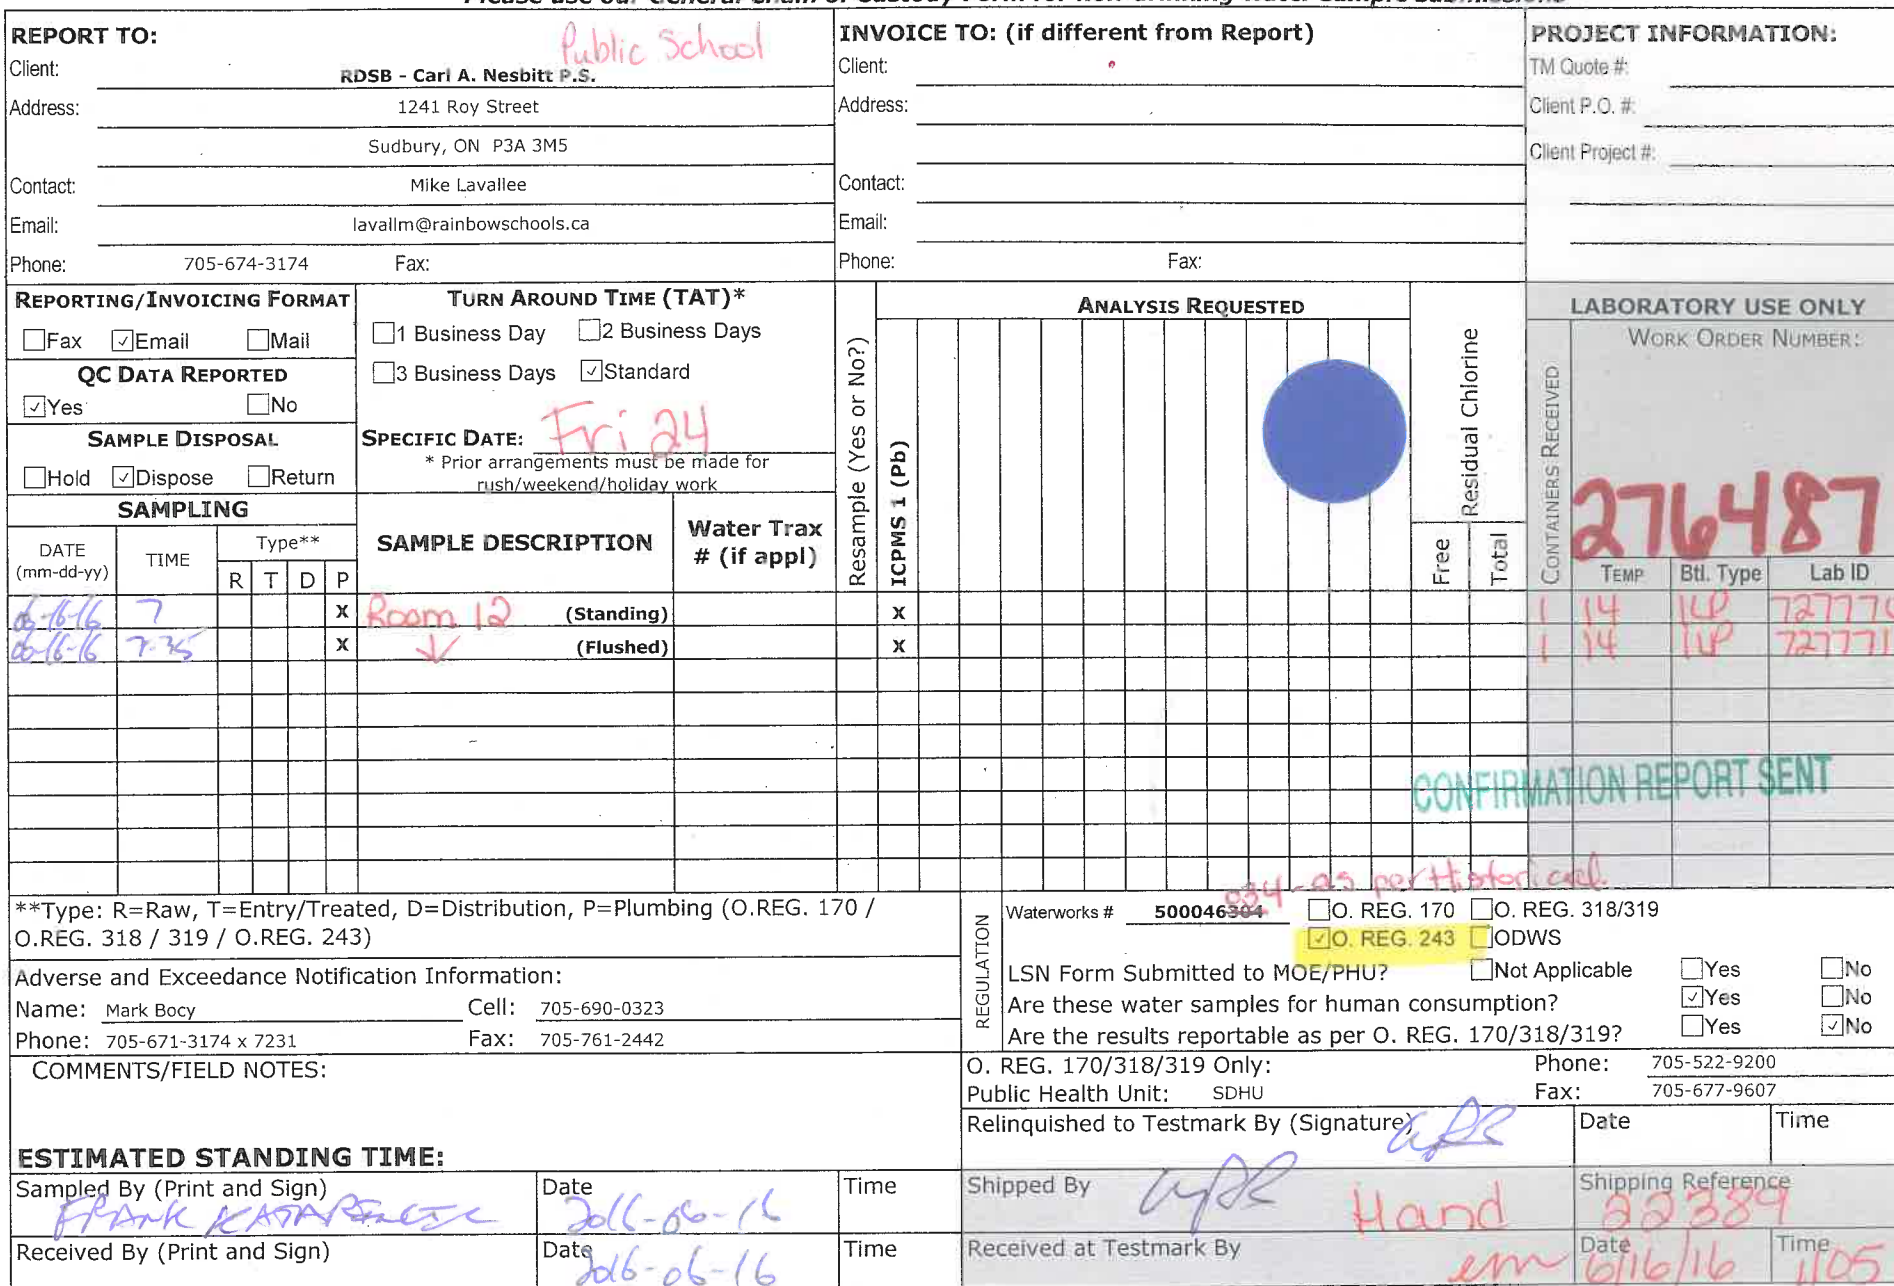 REPORT TO:
Public School
Client: RDSB - Carl A. Nesbitt P.S.
Address: 1241 Roy Street
Sudbury, ON P3A 3M5
Contact: Mike Lavallee
Email: lavallm@rainbowschools.ca
Phone: 705-674-3174 Fax:
INVOICE TO: (if different from Report)
Client:
Address:
Contact:
Email:
Phone: Fax:
PROJECT INFORMATION:
TM Quote #:
Client P.O. #:
Client Project #:
REPORTING/INVOICING FORMAT
Fax Email Mail
QC DATA REPORTED
Yes No
SAMPLE DISPOSAL
Hold Dispose Return
TURN AROUND TIME (TAT)*
1 Business Day 2 Business Days
3 Business Days Standard
SPECIFIC DATE: Fri 24
* Prior arrangements must be made for
rush/weekend/holiday work
Resample (Yes or No?)
ANALYSIS REQUESTED
ICPMS 1 (Pb)
Residual Chlorine
Free
Total
LABORATORY USE ONLY
CONTAINERS RECEIVED
WORK ORDER NUMBER:
276487
TEMP Btl. Type Lab ID
SAMPLING
DATE
(mm-dd-yy)
TIME
Type**
R T D P
SAMPLE DESCRIPTION
Water Trax
# (if appl)
06-16-16 7 X Room 12 (Standing) X 1 14 1LP
06-16-16 7:35 X ↓ (Flushed) X 1 14 1LP 727771
CONFIRMATION REPORT SENT
**Type: R=Raw, T=Entry/Treated, D=Distribution, P=Plumbing (O.REG. 170 /
O.REG. 318 / 319 / O.REG. 243)
Adverse and Exceedance Notification Information:
Name: Mark Bocy Cell: 705-690-0323
Phone: 705-671-3174 x 7231 Fax: 705-761-2442
REGULATION
034 - as per Historical.
Waterworks # 500046304 O. REG. 170 O. REG. 318/319
O. REG. 243 ODWS
LSN Form Submitted to MOE/PHU? Not Applicable Yes No
Are these water samples for human consumption? Yes No
Are the results reportable as per O. REG. 170/318/319? Yes No
COMMENTS/FIELD NOTES:
ESTIMATED STANDING TIME:
O. REG. 170/318/319 Only: Phone: 705-522-9200
Public Health Unit: SDHU Fax: 705-677-9607
Relinquished to Testmark By (Signature) Date Time
Sampled By (Print and Sign) FRANK Date 2016-06-16 Time
Shipped By Hand Shipping Reference 22389
Received By (Print and Sign) Date 2016-06-16 Time
Received at Testmark By em Date 6/16/16 Time 1105